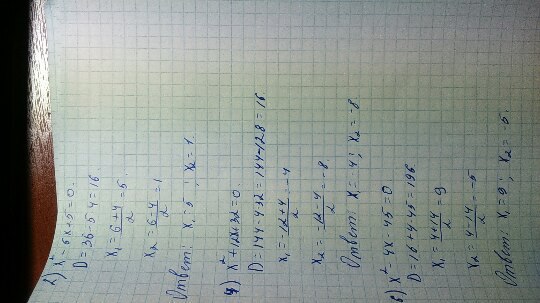 2) x² - 6x + 5 = 0.
D = 36 - 5·4 = 16.
x₁ = (6+4)/2 = 5.
x₂ = (6-4)/2 = 1
Ответ: x₁ = 5 ; x₂ = 1.
4) x² + 12x + 32 = 0
D = 144 - 4·32 = 144 - 128 = 16.
x₁ = (-12+4)/2 = -4
x₂ = (-12-4)/2 = -8
Ответ: x = -4 ; x₂ = -8
6) x² - 4x - 45 = 0
D = 16 + 4·45 = 196.
x₁ = (4+14)/2 = 9
x₂ = (4-14)/2 = -5
Ответ: x₁ = 9 ; x₂ = -5.